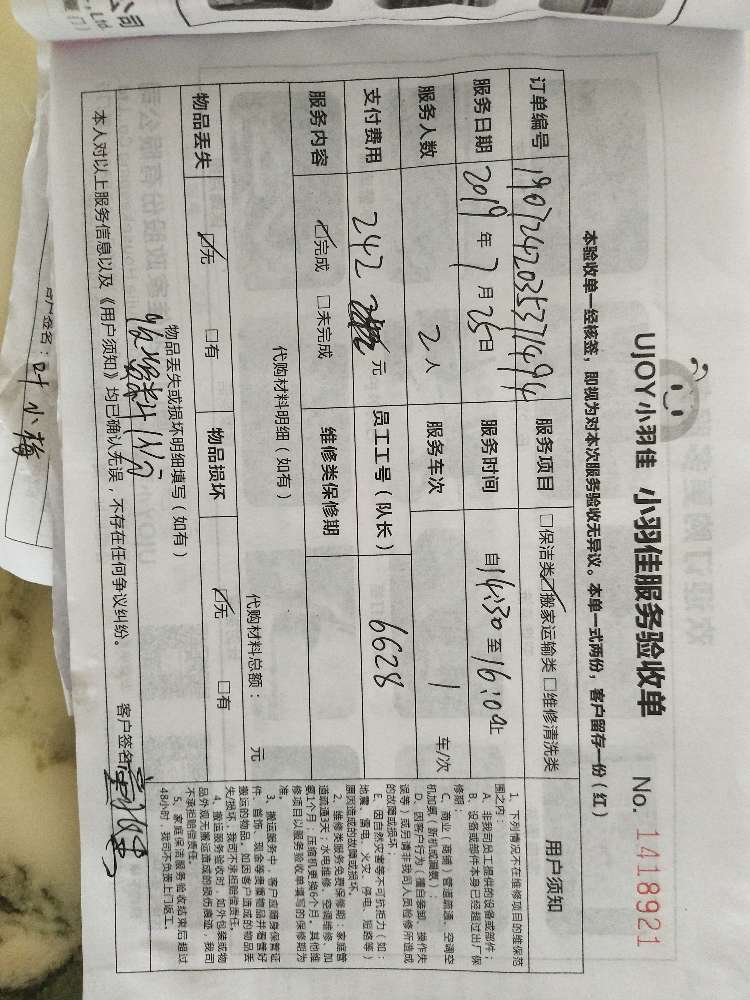 UJOY小羽佳 小羽佳服务验收单 No. 1418921
本验收单一经核签，即视为对本次服务验收无异议。本单一式两份，客户留存一份（红）
订单编号 190724203537 1494 服务项目 □保洁类☑搬家运输类□维修清洗类
服务日期 2019年7月25日 服务时间 自14:30至16:00止
服务人数 2人 服务车次 1 车/次
支付费用 242 元 员工工号（队长） 6628
服务内容 ☑完成 □未完成 维修类保修期
代购材料明细（如有）
代购材料总额： 元
物品丢失 ☑无 □有 物品损坏 ☑无 □有
物品丢失或损坏明细填写（如有）
本人对以上服务信息以及《用户须知》均已确认无误，不存在任何争议纠纷。 客户签名
用户须知
1、下列情况不在维修项目的维保范
围之内：
A、非我司员工提供的设备或部件；
B、设备或部件本身已经超过出厂保
修期；
C、商业（商铺）管道疏通、空调空
机加氟（新机或漏氟）
D、因客户行为（擅自装卸、操作失
误等）或另请非我司人员检修所造成
的故障或损坏。
E、因自然灾害等不可抗拒力（如：
地震、雷电、火灾、停电、短路等）
原因造成的故障或损坏。
2、维修类服务免费保修期：家庭管
道疏通3天；水电维修、空调维修、加
氟1个月；压缩机更换6个月，其他维
修项目以服务验收单填写的保修期为
准。
3、搬运服务中，客户应随身保管证
件、首饰、现金等贵重物品并看管好
搬运的物品。如因客户造成的物品丢
失/损坏，我司不承担赔偿责任。
4、搬运服务验收时，如外包装或物
品外观无搬运造成的损伤痕迹，我司
不承担赔偿责任。
5、家庭保洁服务验收结束后超过
48小时，我司不负责上门返工。
客户签名：叶小梅
公司
, Ltd